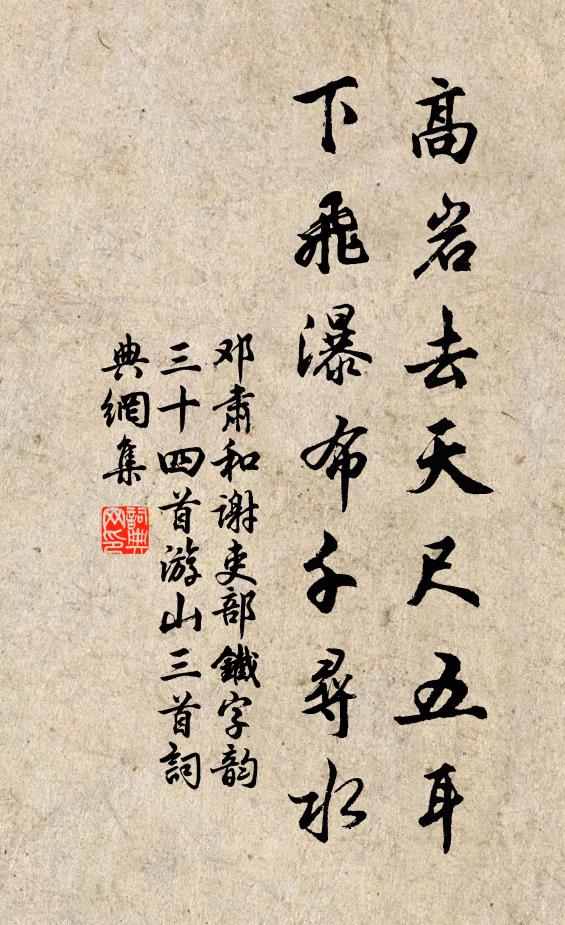 高岩去天尺五耳
下飛瀑布千尋水
邓肅和谢吏部鐵字韵
三十四首游山三首詞
典網集
詞典网印